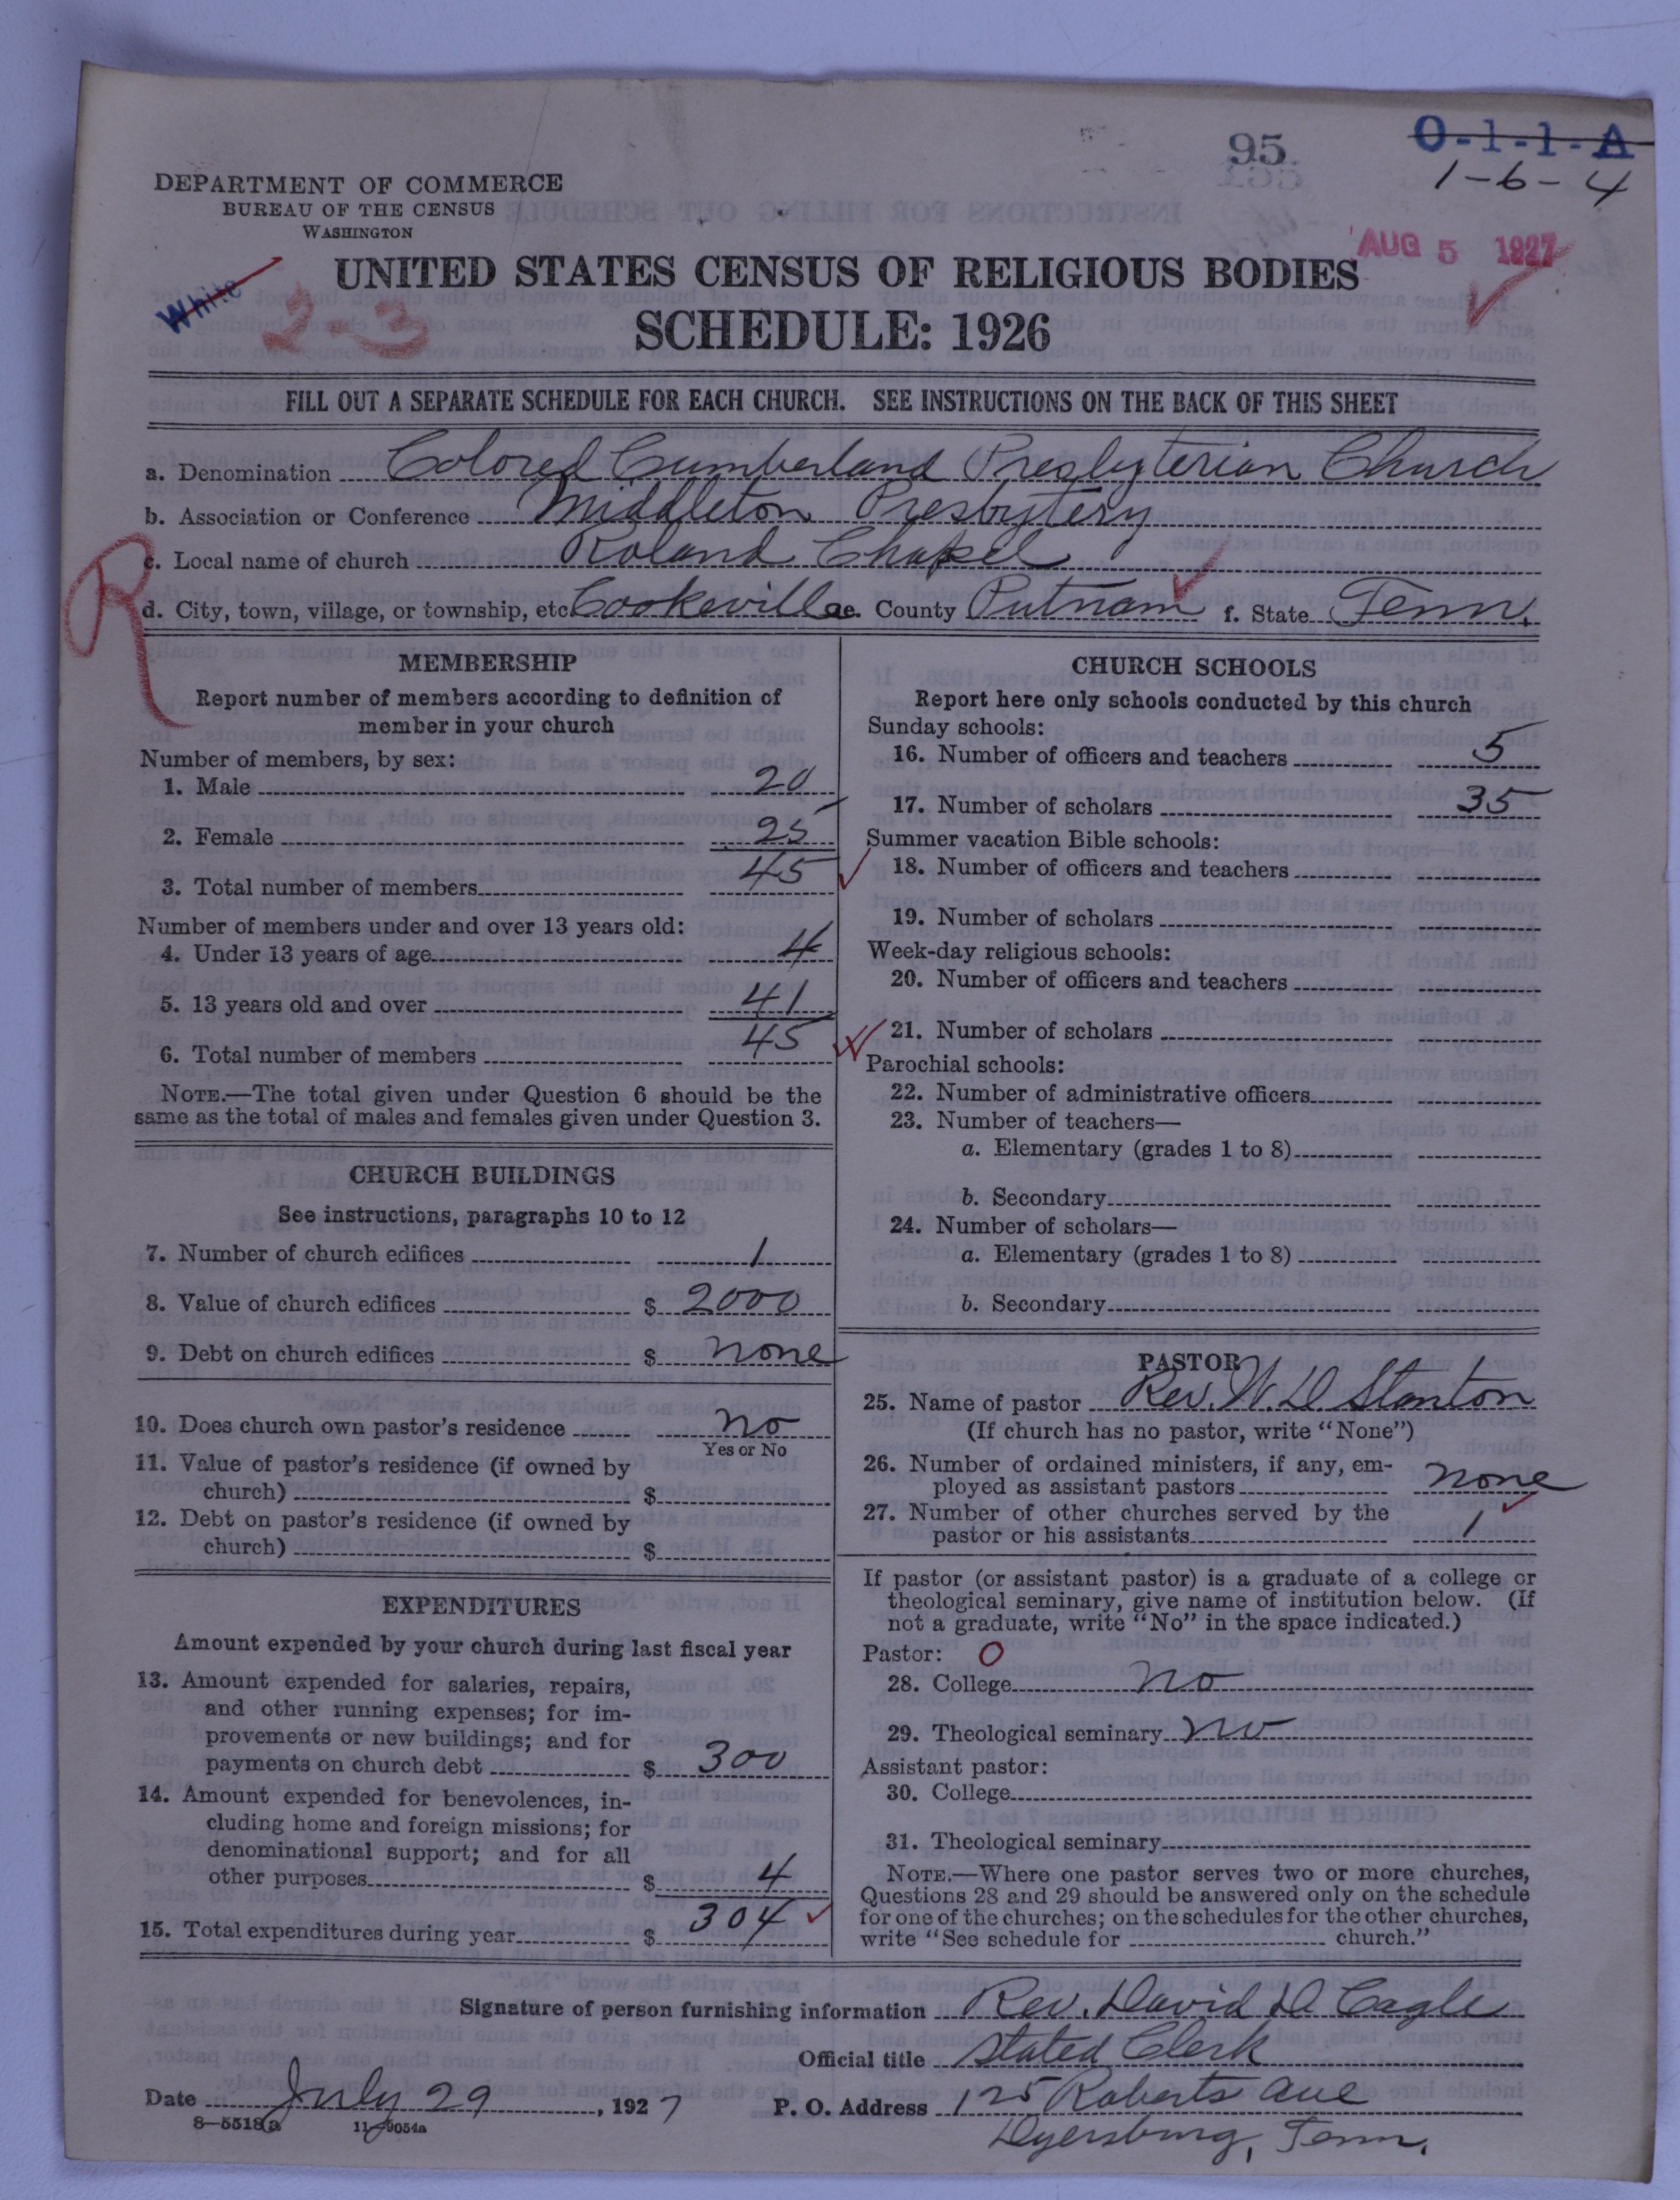 95
O-1-1-A
1-6-4
DEPARTMENT OF COMMERCE
BUREAU OF THE CENSUS
WASHINGTON
AUG 5 1927
White
23
UNITED STATES CENSUS OF RELIGIOUS BODIES
SCHEDULE: 1926
FILL OUT A SEPARATE SCHEDULE FOR EACH CHURCH. SEE INSTRUCTIONS ON THE BACK OF THIS SHEET
a. Denomination Colored Cumberland Presbyterian Church
b. Association or Conference Middleton Presbytery
R
c. Local name of church Roland Chapel
d. City, town, village, or township, etc. Cookeville e. County Putnam f. State Tenn.
MEMBERSHIP
Report number of members according to definition of
member in your church
Number of members, by sex:
1. Male 20
2. Female 25
3. Total number of members 45
Number of members under and over 13 years old:
4. Under 13 years of age 4
5. 13 years old and over 41
6. Total number of members 45
NOTE.—The total given under Question 6 should be the
same as the total of males and females given under Question 3.
CHURCH BUILDINGS
See instructions, paragraphs 10 to 12
7. Number of church edifices 1
8. Value of church edifices $ 2000
9. Debt on church edifices $ none
10. Does church own pastor's residence no
Yes or No
11. Value of pastor's residence (if owned by
church) $
12. Debt on pastor's residence (if owned by
church) $
EXPENDITURES
Amount expended by your church during last fiscal year
13. Amount expended for salaries, repairs,
and other running expenses; for im-
provements or new buildings; and for
payments on church debt $ 300
14. Amount expended for benevolences, in-
cluding home and foreign missions; for
denominational support; and for all
other purposes $ 4
15. Total expenditures during year $ 304
CHURCH SCHOOLS
Report here only schools conducted by this church
Sunday schools:
16. Number of officers and teachers 5
17. Number of scholars 35
Summer vacation Bible schools:
18. Number of officers and teachers
19. Number of scholars
Week-day religious schools:
20. Number of officers and teachers
21. Number of scholars
Parochial schools:
22. Number of administrative officers
23. Number of teachers—
a. Elementary (grades 1 to 8)
b. Secondary
24. Number of scholars—
a. Elementary (grades 1 to 8)
b. Secondary
PASTOR
25. Name of pastor Rev. W. D. Stanton
(If church has no pastor, write "None")
26. Number of ordained ministers, if any, em-
ployed as assistant pastors none
27. Number of other churches served by the
pastor or his assistants 1
If pastor (or assistant pastor) is a graduate of a college or
theological seminary, give name of institution below. (If
not a graduate, write "No" in the space indicated.)
Pastor: O
28. College no
29. Theological seminary no
Assistant pastor:
30. College
31. Theological seminary
NOTE.—Where one pastor serves two or more churches,
Questions 28 and 29 should be answered only on the schedule
for one of the churches; on the schedules for the other churches,
write "See schedule for church."
Signature of person furnishing information Rev. David D Cagle
Official title Stated Clerk
Date July 29, 1927 P. O. Address 125 Roberts Ave
8—5518a 11—9054a
Dyersburg, Tenn.